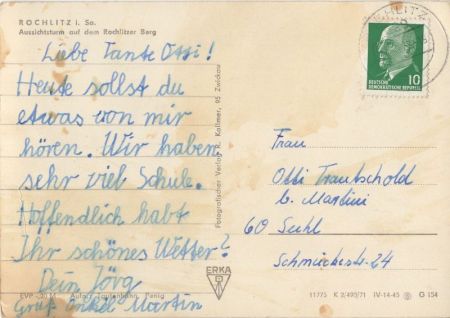 ROCHLITZ i. Sa.
Aussichtsturm auf dem Rochlitzer Berg
Liebe Tante Otti!
Heute sollst du
etwas von mir
hören. Wir haben
sehr viel Schule.
Hoffendlich habt
Ihr schönes Wetter?
Dein Jörg
Gruß Onkel Martin
EVP
Fotografischer Verlag R. Kallmer, 95 Zwickau
ROCHLITZ
10
DEUTSCHE
DEMOKRATISCHE REPUBLIK
Frau
Otti Trautschold
b. Martini
60 Suhl
Schmückestr. 24
ERKA
11775 K 2/490/71 IV-14-45 G 154